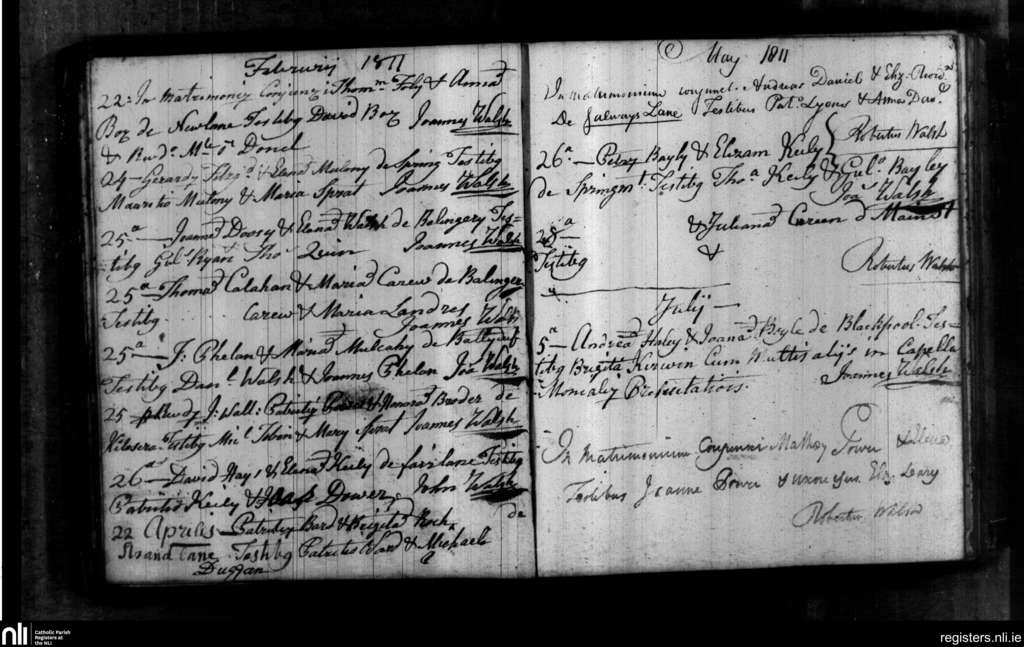 Februrij 1811
22: In Matrimoniu Conjunxi Thom.m Foly & Anna
Boz de Newlane Testibq David Boz Joannes Walsh
& Brid.
24— Gerardu & Elena Mulony de Spring Testibq
Mauretio Mulony & Maria Sprat Joannes Walsh
25.a — & Elena Walsh de Balingery Tes-
tibq Gul. Ryan Tho.s Quin Joannes Walsh
25a — Thoma Calahan & Maria Carew de Balinger
Testibq Carew & Maria Landres
Joannes Walsh
25a — J. Phelan & Maria Mulcahy de Ballyduf
Testibq Dan.l Walsh & Joannes Phelan Joa Walsh
25 J. Wall: Patrity & Broder de
Kilosera Testibq Mic.l Tobin & Mary Sprat Joannes Walsh
26a — David Hays & Elena Kiely de fairlane Testibq
Patritio Kiely & Dower John Walsh
22 Aprilis — Patrity Bard & Brigeta Roch de
Strand Lane Testibq Patritio Ward & Michaele
Duggan
May 1811
In matrimonium conjunct. Andreas Daniel & Eliz.
De Galways Lane Testibus Pat. Lyons & Annas Dan.
Robertus Walsh
26a. — Petry Bayly & Elizam Kiely
de Springm.t Testibq Tho.a Kiely & Gul.o Bayley
Joa Walsh
28 a — & Juliana Careen d
Testibq &
Robertus Walsh
Julij —
5.a — Andrea Haley & Joana Boyle de Blackpool. Tes-
tibq Brigita Kirwin Cum Multis alijs in Capella
Monializ Presentationis. Joannes Walsh
In Matrimonium Conjunxi Mathew Power & Elena
Testibus Joanne Power & uxore ejus Eliz. Leary
Robertus Walsh
nli
Catholic Parish
Registers at
the NLI
registers.nli.ie